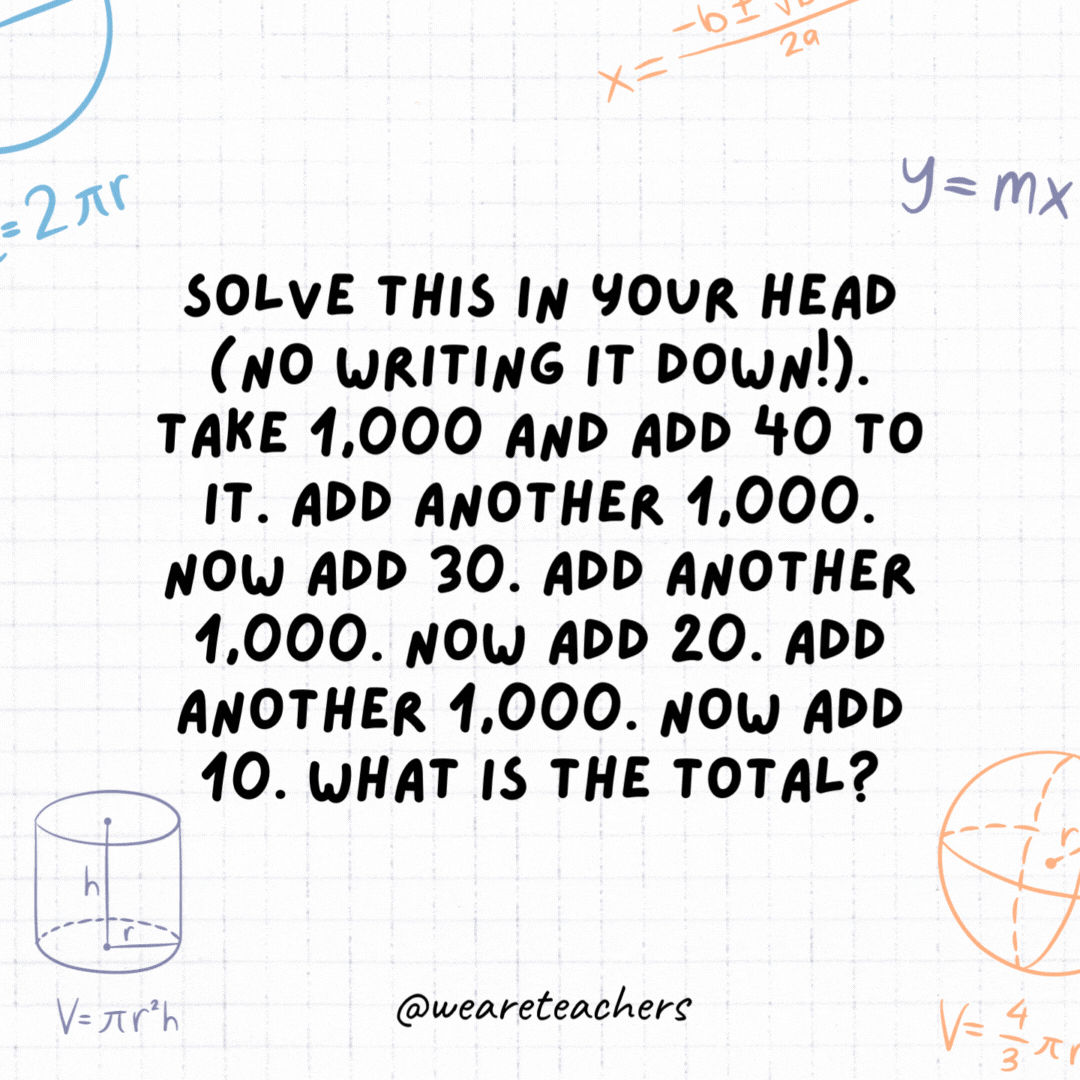 x = -b ± √b
2a
= 2πr
y = mx
SOLVE THIS IN YOUR HEAD
(NO WRITING IT DOWN!).
TAKE 1,000 AND ADD 40 TO
IT. ADD ANOTHER 1,000.
NOW ADD 30. ADD ANOTHER
1,000. NOW ADD 20. ADD
ANOTHER 1,000. NOW ADD
10. WHAT IS THE TOTAL?
h
r
r
V= πr²h
@weareteachers
V= 4
3 πr